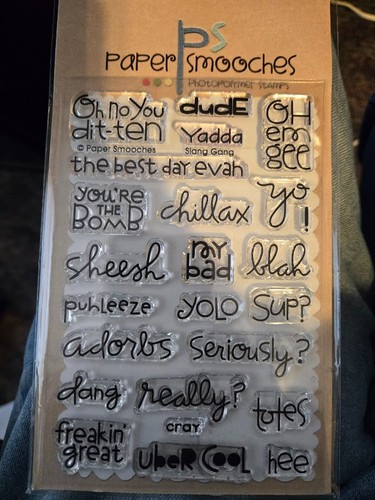 ps
PAPER SMOOCHES
PHOTOPOLYMER STAMPS
Oh no You
dit-ten
dude
Yadda
OH
em
gee
© Paper Smooches
Slang Gang
the best day evah
you're
THE
BOMB
chillax
yo!
sheesh
my
bad
blah
puhleeze
YOLO
Sup?
adorbs
Seriously?
dang
really?
totes
freakin'
great
cray
uber cool
hee